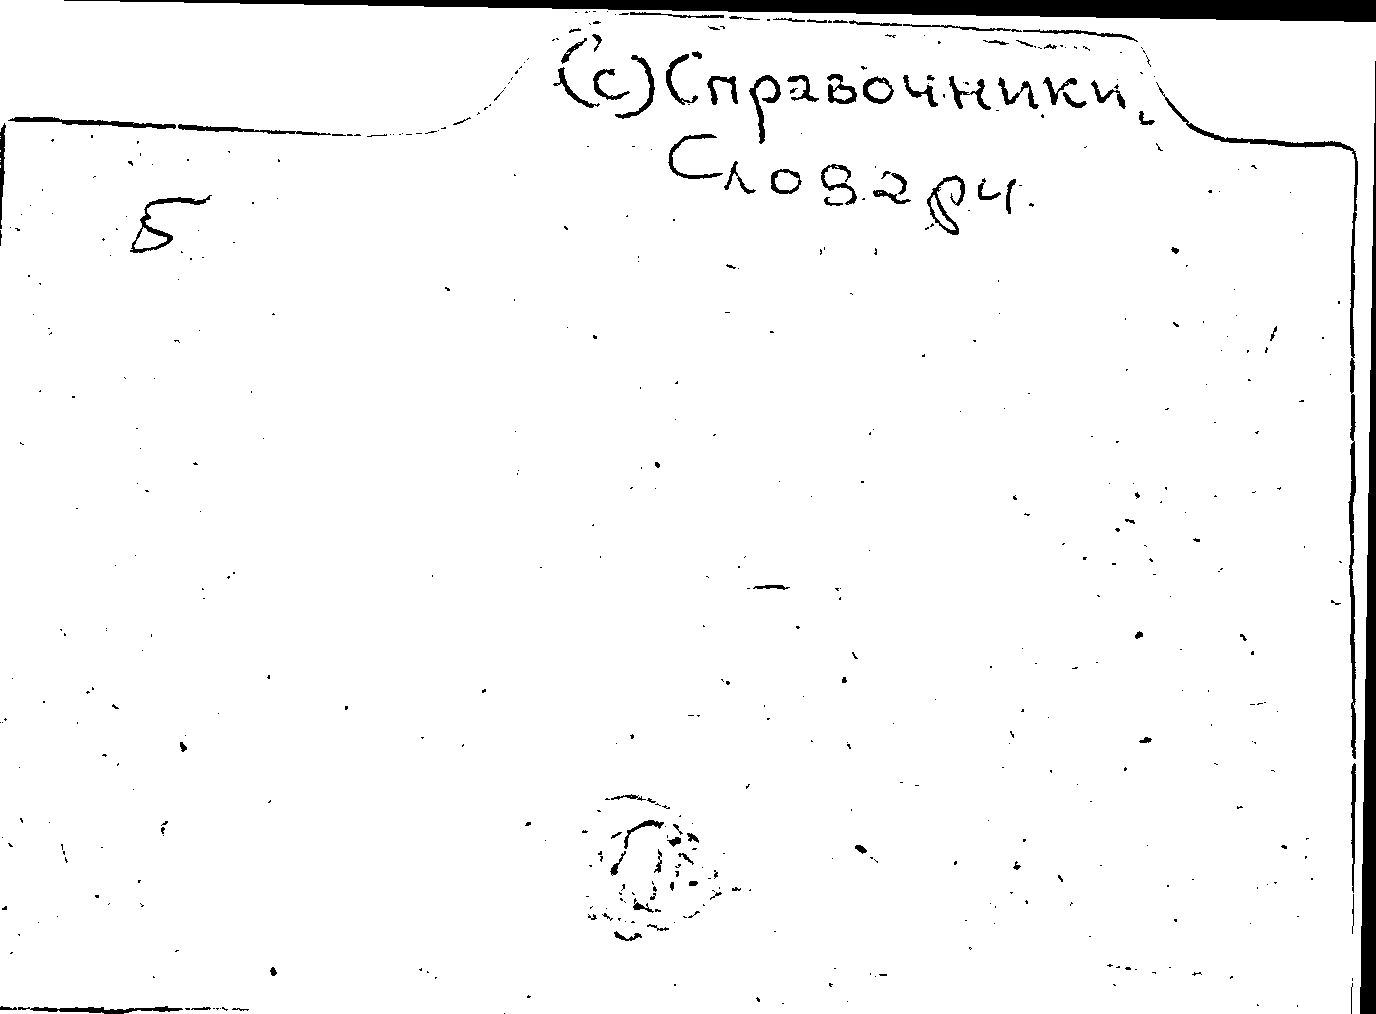 (с) Справочники,
Словари.
5